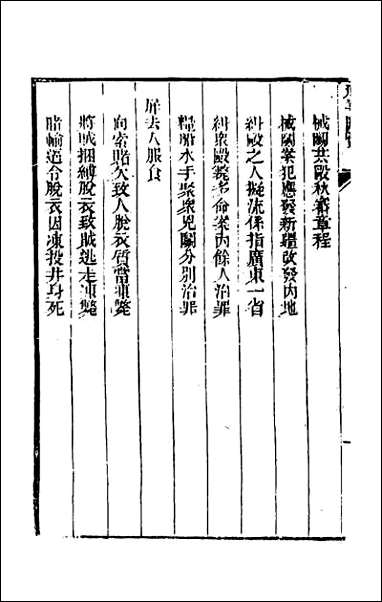 械鬭共毆秋審章程
械鬭案犯應發新疆改發內地
糾毆之人擬流係指廣東一省
糾衆毆斃多命案內餘人治罪
糧船水手聚衆兇鬭分別治罪
屏去人服食
向索賭欠致人脫衣質當凍斃
將賊捆縛脫衣致賊逃走凍斃
賭輸逼令脫衣因凍投井身死